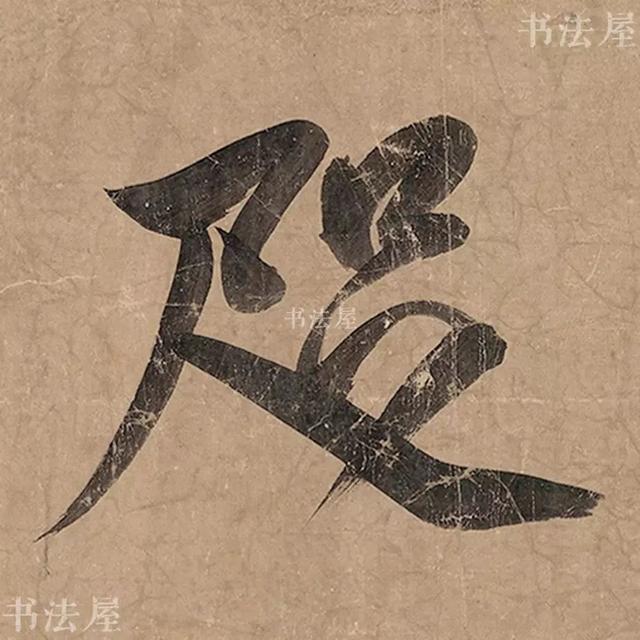 书法屋
咫
书法屋
书法屋